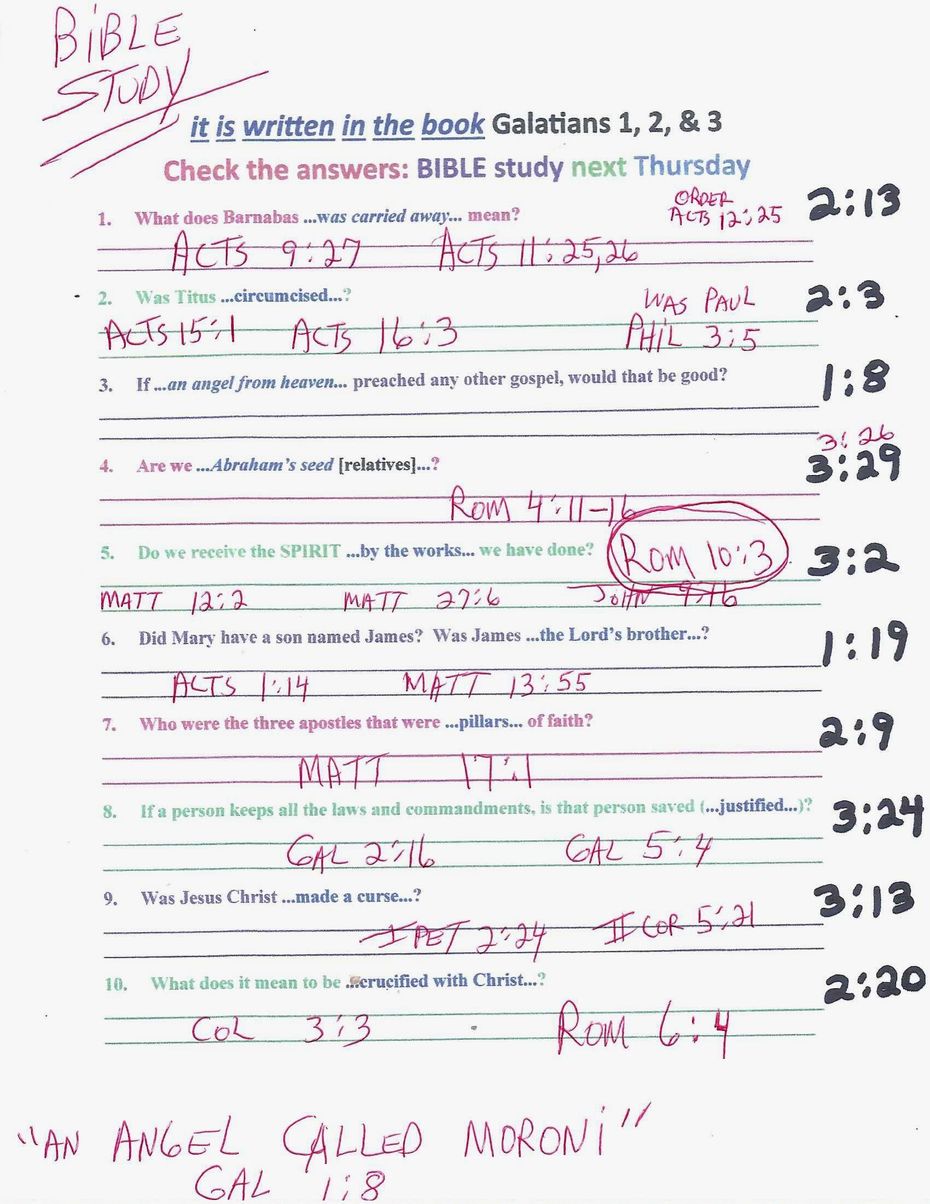 BiBLE
STUDY
it is written in the book Galatians 1, 2, & 3
Check the answers: BIBLE study next Thursday
ORDER
1. What does Barnabas ...was carried away... mean? ACTS 12:25 2:13
ACTS 9:27 ACTS 11:25,26
2. Was Titus ...circumcised...? WAS PAUL 2:3
ACTS 15:1 ACTS 16:3 PHiL 3:5
3. If ...an angel from heaven... preached any other gospel, would that be good? 1:8
3:26
4. Are we ...Abraham's seed [relatives]...? 3:29
ROM 4:11-16
5. Do we receive the SPIRIT ...by the works... we have done? ROM 10:3 3:2
MATT 12:2 MATT 27:6 JOHN 9:16
6. Did Mary have a son named James? Was James ...the Lord's brother...? 1:19
ACTS 1:14 MATT 13:55
7. Who were the three apostles that were ...pillars... of faith? 2:9
MATT 17:1
8. If a person keeps all the laws and commandments, is that person saved (...justified...)? 3:24
GAL 2:16 GAL 5:4
9. Was Jesus Christ ...made a curse...? 3:13
I PET 2:24 II COR 5:21
10. What does it mean to be ...crucified with Christ...? 2:20
COL 3:3 ROM 6:4
"AN ANGEL CALLED MORONi"
GAL 1:8